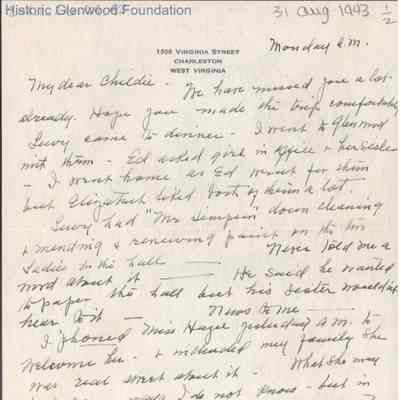 Historic Glenwood Foundation
31 Aug 1943 1/2
1509 VIRGINIA STREET
CHARLESTON
WEST VIRGINIA
Monday a.m.
My dear Childie - We have missed you a lot
already. Hope you made the trip comfortably
Lucy came to dinner - I went to Glenwood
with them - Ed asked girl in office & her sister
- I went home as Ed went for them
but Elizabeth liked both of them a lot -
Lucy had "Mr Simpson" down cleaning
& mending & renewing paint on the two
Ladies in the hall Never told me a
word about it He said he wanted
to paper the hall but his Sister wouldn't
hear to it - News to me
I phoned Miss Hazel yesterday a.m. to
welcome her - & included my family She
was real sweet about it - What she may
I do not know - but in